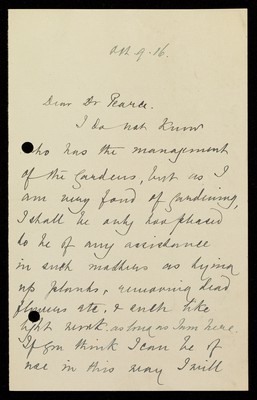 Oct 9. 16.
Dear Dr Pearce.
I do not know
who has the management
of the Gardens, but as I
am very fond of gardening,
I shall be only too pleased
to be of any assistance
in such matters as tying
up plants, removing dead
flowers etc, & such like
light work as long as I am here.
If you think I can be of
use in this way I will